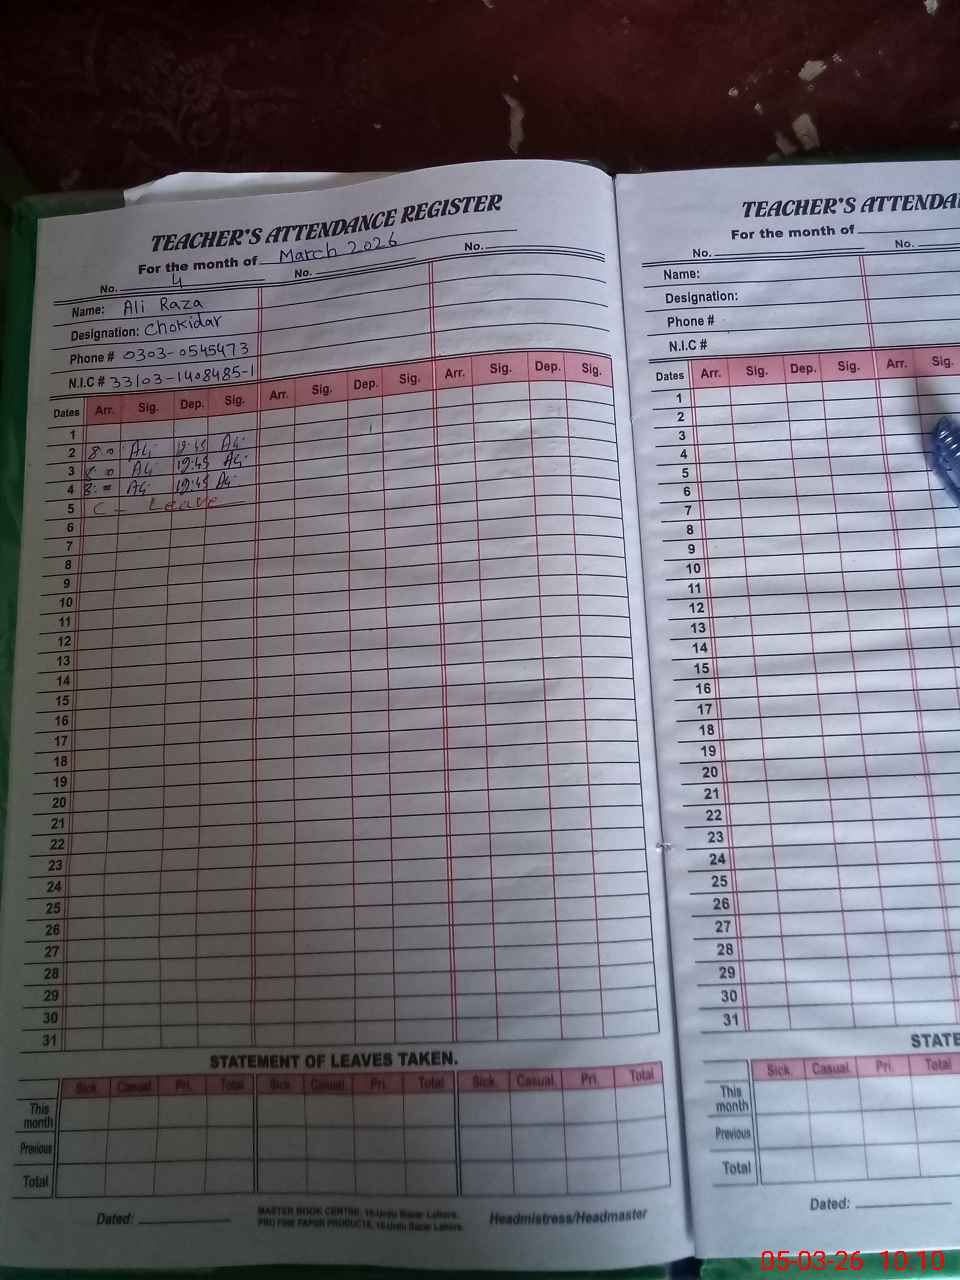 TEACHER'S ATTENDANCE REGISTER
For the month of March 2026
No. 4 No. No.
Name: Ali Raza
Designation: Chokidar
Phone # 0303-0545473
N.I.C # 33103-1408485-1
Dates Arr. Sig. Dep. Sig. Arr. Sig. Dep. Sig. Arr. Sig. Dep. Sig.
1
2 12:45
3 12:45
4 12:45
5 C - Leave
6
7
8
9
10
11
12
13
14
15
16
17
18
19
20
21
22
23
24
25
26
27
28
29
30
31
STATEMENT OF LEAVES TAKEN.
Sick. Casual Pri. Total Sick. Casual Pri. Total Sick. Casual Pri. Total
This month
Previous
Total
Dated:
MASTER BOOK CENTRE,
Headmistress/Headmaster
TEACHER'S ATTENDA
For the month of
No. No.
Name:
Designation:
Phone #
N.I.C #
Dates Arr. Sig. Dep. Sig. Arr. Sig.
1
2
3
4
5
6
7
8
9
10
11
12
13
14
15
16
17
18
19
20
21
22
23
24
25
26
27
28
29
30
31
STATE
Sick. Casual Pri. Total
This month
Previous
Total
Dated:
05-03-26 10:10